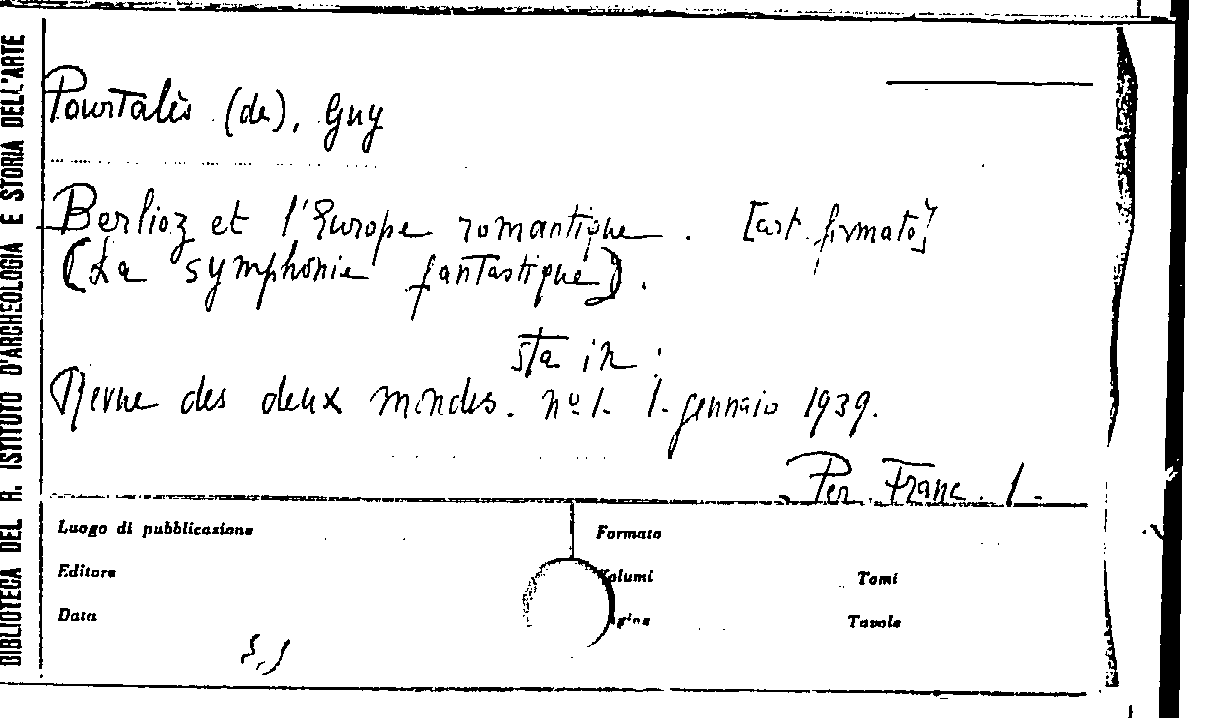 BIBLIOTECA DEL R. ISTITUTO D'ARCHEOLOGIA E STORIA DELL'ARTE
Pourtalès (de), Guy
Berlioz et l'Europe romantique. [art. firmato]
(La symphonie fantastique).
sta in:
Revue des deux mondes. nº 1. 1. gennaio 1939.
Per. Franc. 1.
Luogo di pubblicazione
Formato
Editore
Volumi
Tomi
Data
Pagine
Tavole